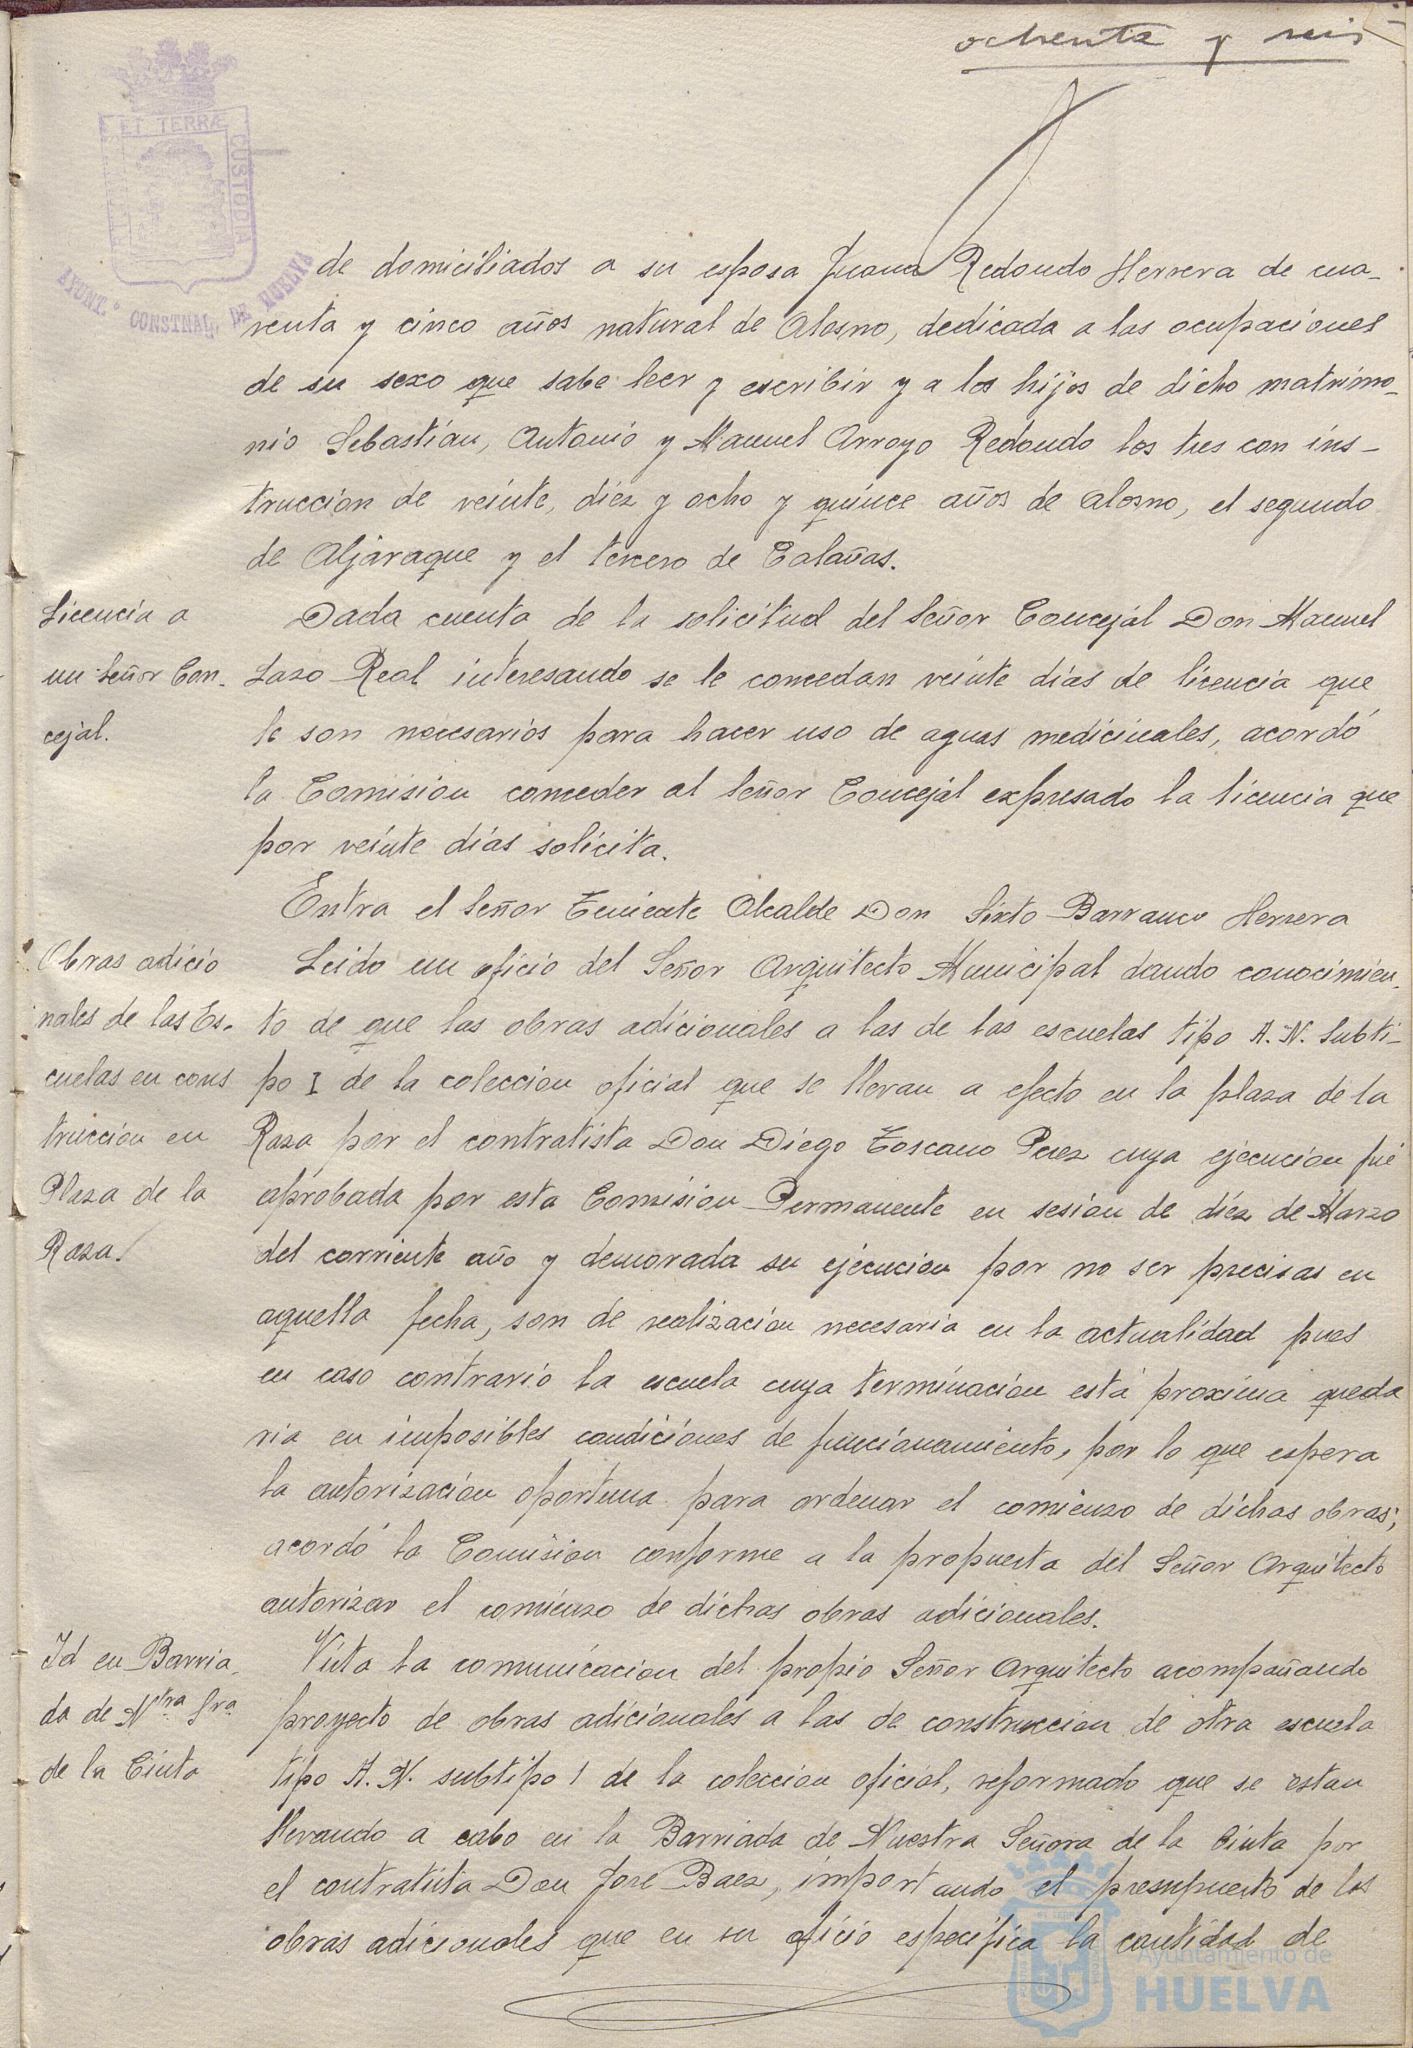 ochenta y seis
ET TERRÆ
CUSTODIA
AYUNT.º CONSTNAL. DE HUELVA
de domiciliados a su esposa Juana Redondo Herrera de cua-
renta y cinco años natural de Alosno, dedicada a las ocupaciones
de su sexo que sabe leer y escribir y a los hijos de dicho matrimo-
nio Sebastián, Antonio y Manuel Arroyo Redondo los tres con ins-
truccion de veinte, diez y ocho y quince años de Alosno, el segundo
de Aljaraque y el tercero de Calañas.
Licencia a
un Señor Con-
cejal.
Dada cuenta de la solicitud del Señor Concejal Don Manuel
Lazo Real interesando se le concedan veinte días de licencia que
le son necesarios para hacer uso de aguas medicinales, acordó
la Comision conceder al Señor Concejal expresado la licencia que
por veinte días solicita.
Entra el Señor Teniente Alcalde Don Sixto Barranco Herrera
Obras adicio
nales de las Es-
cuelas en cons
truccion en
Plaza de la
Raza.
Leido un oficio del Señor Arquitecto Municipal dando conocimien-
to de que las obras adicionales a las de las escuelas tipo A.N. Subti-
po I de la coleccion oficial que se llevan a efecto en la plaza de la
Raza por el contratista Don Diego Toscano Perez cuya ejecucion fué
aprobada por esta Comision Permanente en sesion de diez de Marzo
del corriente año y demorada su ejecucion por no ser precisas en
aquella fecha, son de realizacion necesaria en la actualidad pues
en caso contrario la escuela cuya terminacion está proxima queda
ria en imposibles condiciones de funcionamiento, por lo que espera
la autorizacion oportuna para ordenar el comienzo de dichas obras;
acordó la Comision conforme a la propuesta del Señor Arquitecto
autorizar el comienzo de dichas obras adicionales.
Id en Barria-
da de Ntra Sra
de la Cinta
Vista la comunicacion del propio Señor Arquitecto acompañando
proyecto de obras adicionales a las de construccion de otra escuela
tipo A.N. subtipo 1 de la coleccion oficial, reformado que se estan
llevando a cabo en la Barriada de Nuestra Señora de la Cinta por
el contratista Don José Baez, importando el presupuesto de las
obras adicionales que en su oficio especifica la cantidad de
Ayuntamiento de
HUELVA